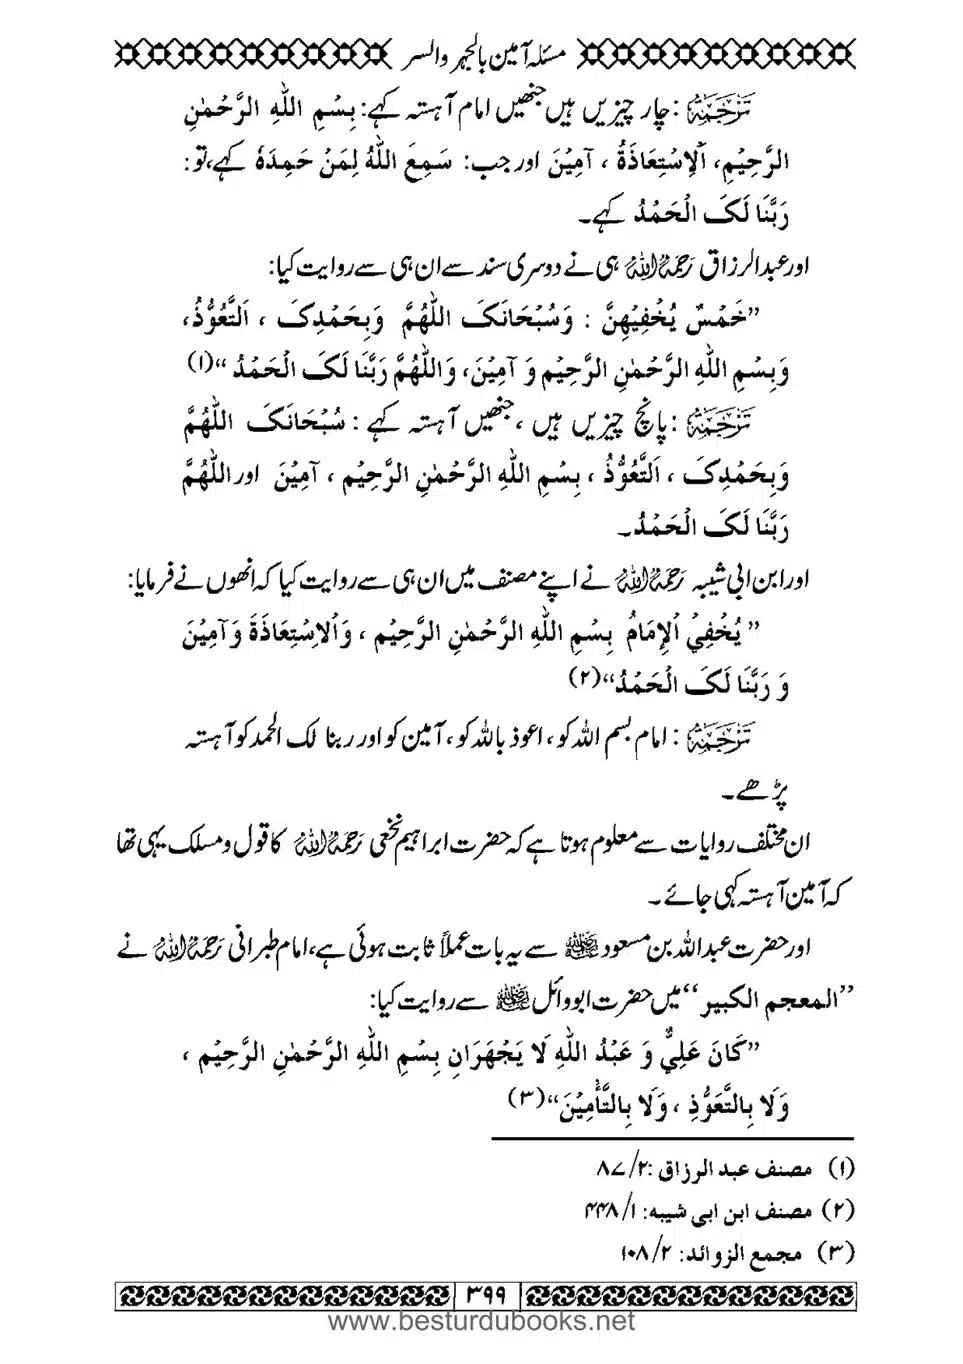 مسئلہ آمین بالجہر والسر
تَرْجَمَہٗ : چار چیزیں ہیں جنھیں امام آہستہ کہے: بِسْمِ اللّٰهِ الرَّحْمٰنِ
الرَّحِيْمِ، اَلْاِسْتِعَاذَةُ ، آمِيْنَ اور جب: سَمِعَ اللّٰهُ لِمَنْ حَمِدَهٗ کہے، تو:
رَبَّنَا لَکَ الْحَمْدُ کہے۔
اور عبدالرزاق رَحِمَہُ اللّٰہُ ہی نے دوسری سند سے ان ہی سے روایت کیا:
”خَمْسٌ يُخْفِيْهِنَّ : وَسُبْحَانَکَ اللّٰهُمَّ وَبِحَمْدِکَ ، اَلتَّعَوُّذُ،
وَبِسْمِ اللّٰهِ الرَّحْمٰنِ الرَّحِيْمِ وَ آمِيْنَ، وَاللّٰهُمَّ رَبَّنَا لَکَ الْحَمْدُ “(۱)
تَرْجَمَہٗ : پانچ چیزیں ہیں ، جنھیں آہستہ کہے : سُبْحَانَکَ اللّٰهُمَّ
وَبِحَمْدِکَ ، اَلتَّعَوُّذُ ، بِسْمِ اللّٰهِ الرَّحْمٰنِ الرَّحِيْمِ ، آمِيْنَ اور اللّٰهُمَّ
رَبَّنَا لَکَ الْحَمْدُ۔
اور ابن ابی شیبہ رَحِمَہُ اللّٰہُ نے اپنے مصنف میں ان ہی سے روایت کیا کہ انھوں نے فرمایا:
” يُخْفِيْ اَلْاِمَامُ بِسْمِ اللّٰهِ الرَّحْمٰنِ الرَّحِيْمِ ، وَالْاِسْتِعَاذَةَ وَ آمِيْنَ
وَ رَبَّنَا لَکَ الْحَمْدُ“(۲)
تَرْجَمَہٗ : امام بسم اللہ کو ، اعوذ باللہ کو ، آمین کو اور ربنا لک الحمد کو آہستہ
پڑھے۔
ان مختلف روایات سے معلوم ہوتا ہے کہ حضرت ابراہیم نخعی رَحِمَہُ اللّٰہُ کا قول و مسلک یہی تھا
کہ آمین آہستہ کہی جائے۔
اور حضرت عبد اللہ بن مسعود رضی اللہ عنہ سے یہ بات عملاً ثابت ہوئی ہے، امام طبرانی رَحِمَہُ اللّٰہُ نے
”المعجم الکبیر“ میں حضرت ابو وائل رضی اللہ عنہ سے روایت کیا:
”کَانَ عَلِيٌّ وَ عَبْدُ اللّٰهِ لَا يَجْهَرَانِ بِسْمِ اللّٰهِ الرَّحْمٰنِ الرَّحِيْمِ ،
وَلَا بِالتَّعَوُّذِ ، وَلَا بِالتَّأْمِيْنَ“(۳)
(۱) مصنف عبد الرزاق :۸۷/۲
(۲) مصنف ابن ابی شیبہ: ۴۴۸/۱
(۳) مجمع الزوائد: ۱۰۸/۲
۳۹۹
www.besturdubooks.net